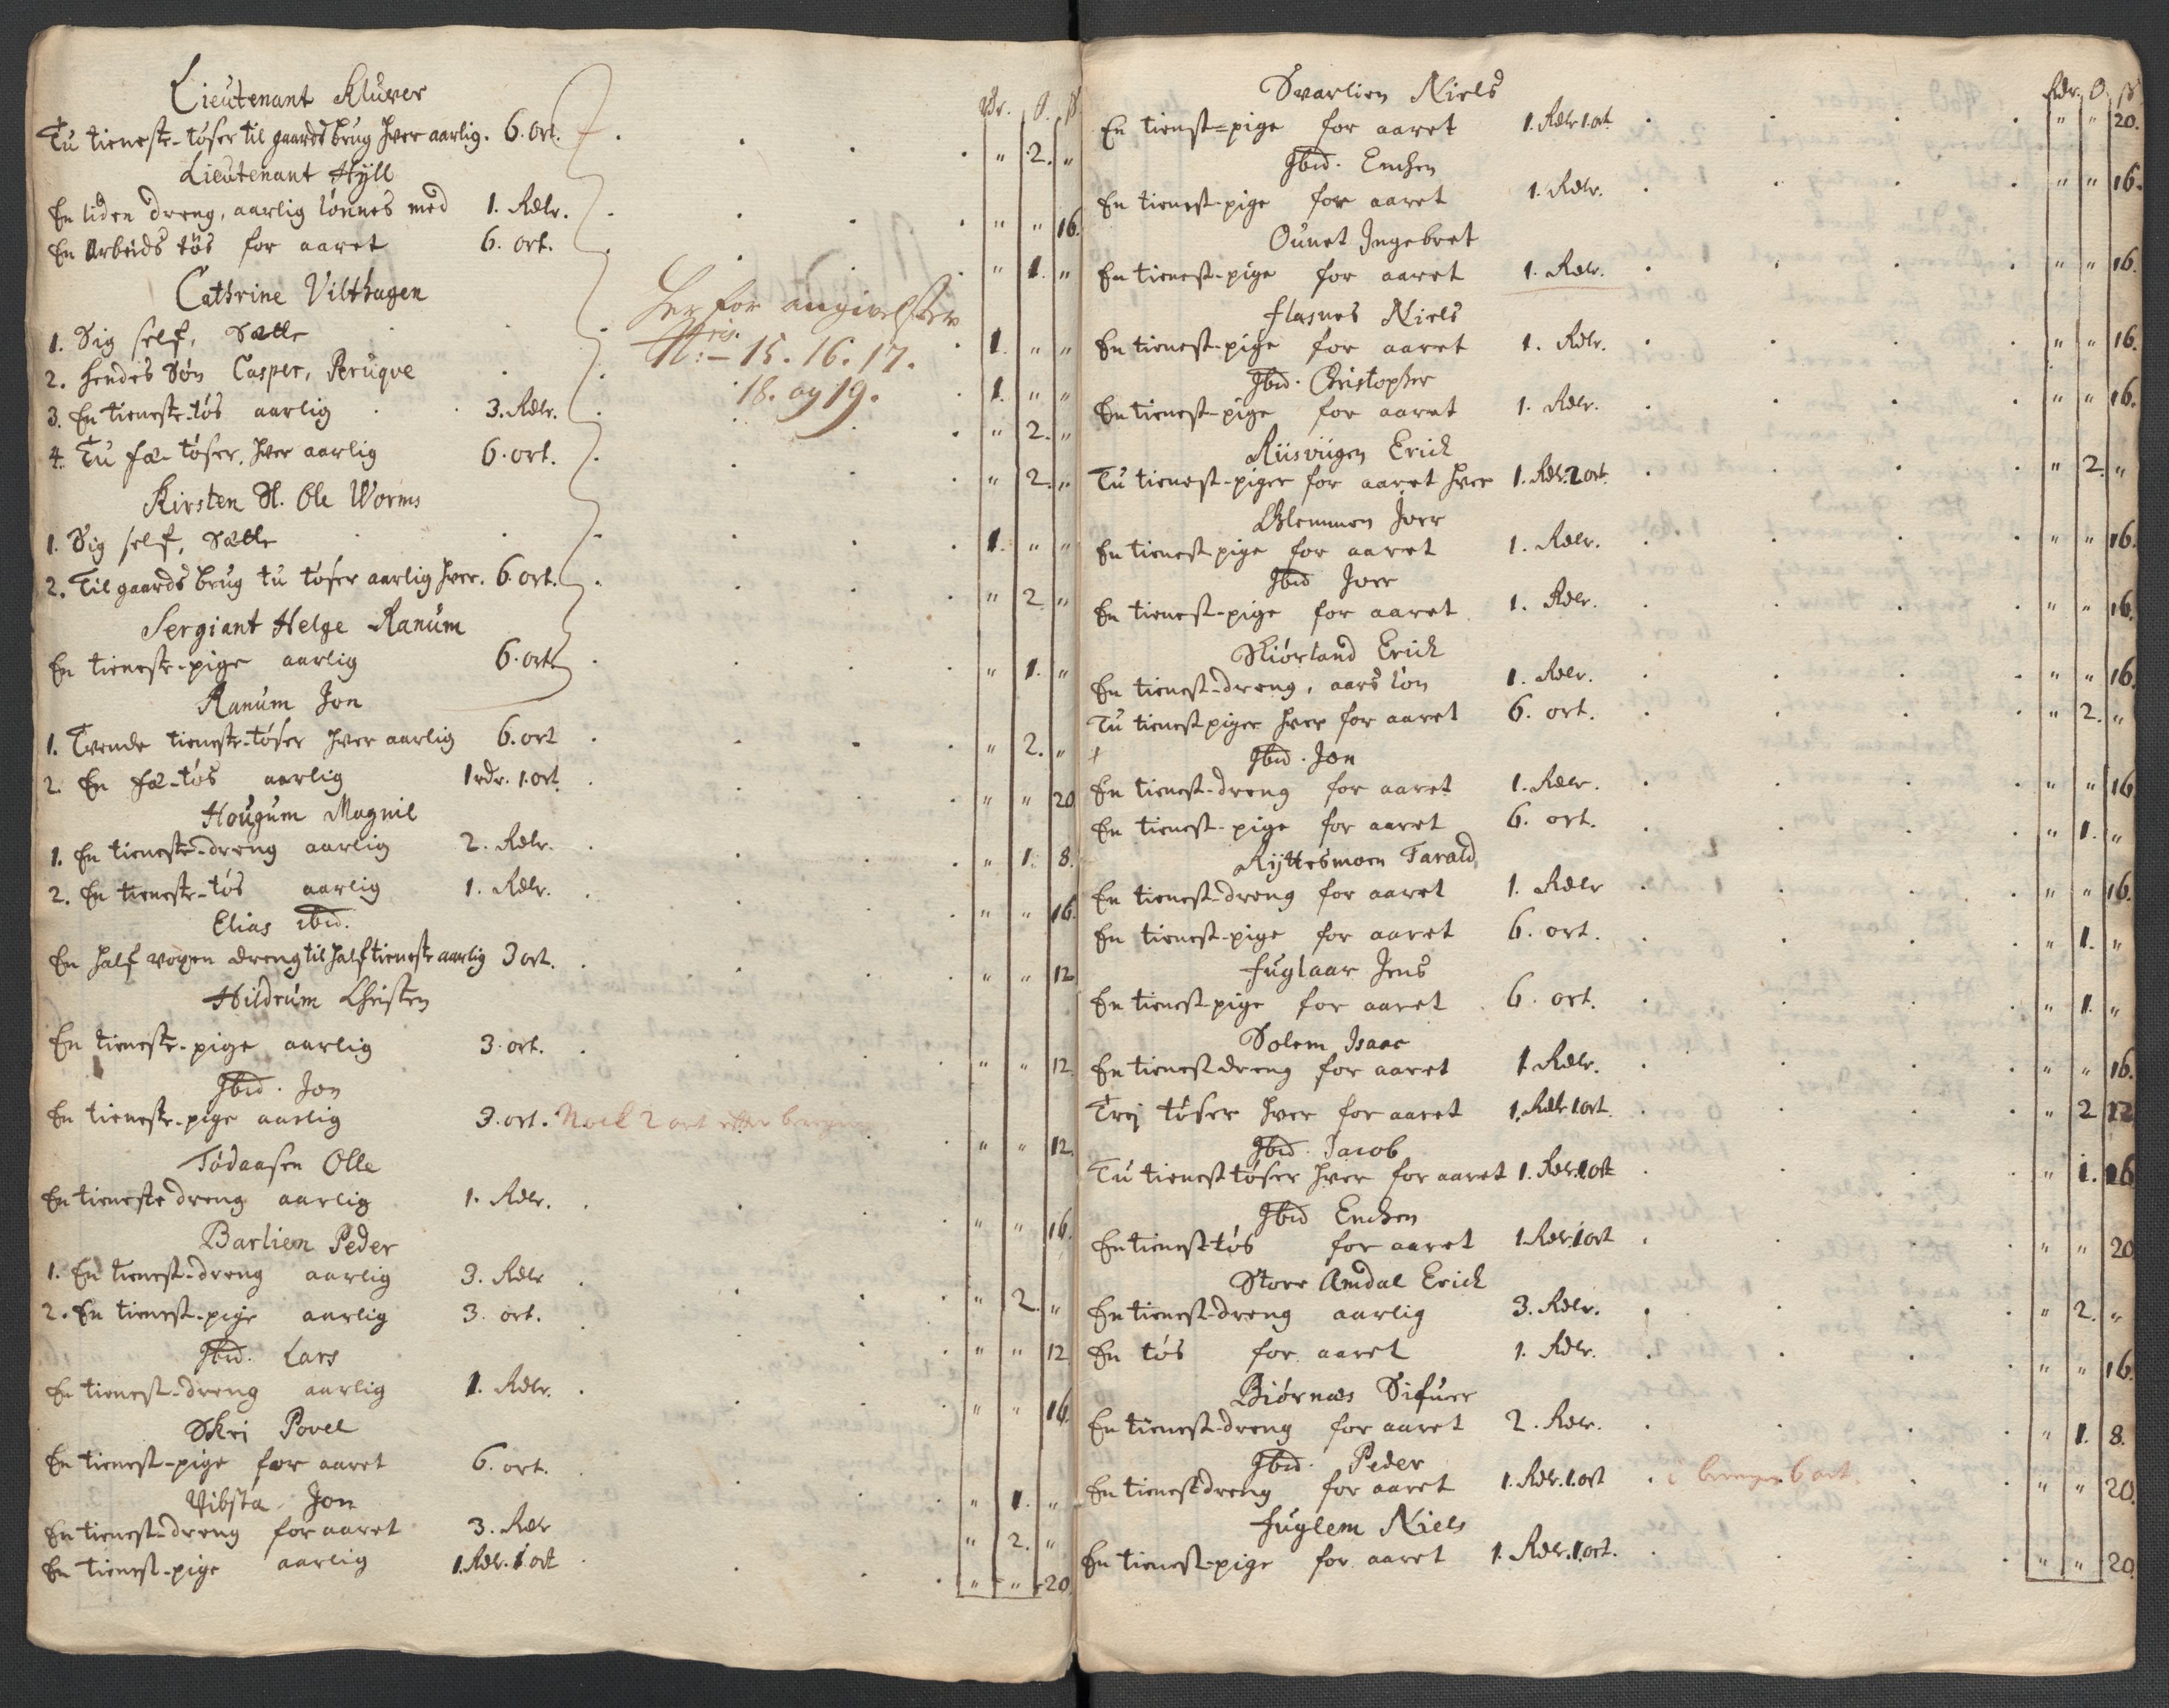 Lieutenant Kluver
Rdr. O. ß
Tu tieneste-tøser til gaards brug hver aarlig. 6. ort. " 2. "
Lieutenant Hyll
En liden dreng, aarlig lønnes med 1. Rdlr. " " 16.
En Arbeids tøs for aaret 6. ort. " 1. "
Cathrine Vilthagen
Her for angivelser
No: 15. 16. 17.
18. og 19.
1. Sig self, Sætte 1. " "
2. hendes Søn Casper, Peruqve 1. " "
3. En tieneste-tøs aarlig 3. Rdlr. " 2. "
4. Tu fæ-tøser, hver aarlig 6. ort. " 2. "
Kirsten Sl. Ole Worms
1. Sig self, Sætte 1. " "
2. Til gaards brug tu tøser aarlig hver. 6. ort. " 2. "
Sergiant Helge Ranum
En tieneste-pige aarlig 6. ort " 1. "
Ranum Jon
1. Tvende tieneste-tøser hver aarlig 6. ort " 2. "
2. En fæ-tøs aarlig 1 rdr. 1. ort. " " 20
Hougum Magnil
1. En tieneste-dreng aarlig 2. Rdlr. " 1. 8.
2. En tieneste-tøs aarlig 1. Rdlr. " " 16.
Elias ibid.
En half voxen dreng til half tieneste aarlig 3 ort. " " 12
Hildrum Christen
En tieneste-pige aarlig 3. ort. " " 12.
Ibid. Jon
En tieneste-pige aarlig 3. ort. " " 12.
Tødaasen Olle
En tieneste dreng aarlig 1. Rdlr. " " 16.
Barlien Peder
1. En tienest-dreng aarlig 3. Rdlr " 2. "
2. En tienest-pige aarlig 3. ort. " " 12
Ibid. Lars
En tienest-dreng aarlig 1. Rdlr. " " 16.
Skei Povel
En tienest-pige for aaret 6. ort. " 1. "
Vibsta Jon
En tienest-dreng for aaret 3. Rdlr " 2. "
En tienest-pige aarlig 1. Rdlr. 1 ort " " 20.
Svarlien Niels
Rdr. O. ß
En tienst-pige for aaret 1. Rdlr 1. ort. " " 20.
Ibid. Enchen
En tienest-pige for aaret 1. Rdlr. " " 16.
Ounet Ingebret
En tienest-pige for aaret 1. Rdlr. " " 16.
Flasnes Niels
En tienest-pige for aaret 1. Rdlr. " " 16.
Ibid. Christopher
En tienest-pige for aaret 1. Rdlr. " " 16.
Riisviigen Erich
Tu tienest-piger for aaret hver 1. Rdlr. 2 ort. " 2. "
Glemmen Joer
En tienest pige for aaret 1. Rdlr. " " 16.
Ibid Joer
En tienest-pige for aaret 1. Rdlr. " " 16.
Skiørland Erich
En tienest-dreng, aars løn 1. Rdlr. " " 16.
Tu tienest piger hver for aaret 6. ort. " 2. "
Ibid. Jon
En tienest-dreng for aaret 1. Rdlr. " " 16
En tienest-pige for aaret 6. ort. " 1. "
Ryttesmoen Tarald
En tienest-dreng for aaret 1. Rdlr " " 16.
En tienest-pige for aaret 6. ort. " 1. "
Fuglaar Jens
En tienest-pige for aaret 6. ort. " 1. "
Solem Isaac
En tienest dreng for aaret 1 Rdlr. " " 16.
Trej tøser hver for aaret 1. Rdlr 1 ort. " 2 12
Ibid. Jacob
Tu tienest tøser hver for aaret 1. Rdlr. 1 ort " 1. 16
Ibid Enchen
En tienest-tøs for aaret 1 Rdlr. 1 ort " " 20
Store Amdal Erich
En tienest-dreng aarlig 3. Rdlr. " 2. "
En tøs for aaret 1. Rdlr. " " 16.
Biørnæs Sifuer
En tienest-dreng for aaret 2. Rdlr. " 1. 8.
Ibid. Peder
En tienest dreng for aaret 1. Rdlr. 1. ort " " 20.
Fuglem Niels
En tienest-pige for aaret 1. Rdlr. 1 ort. " " 20.